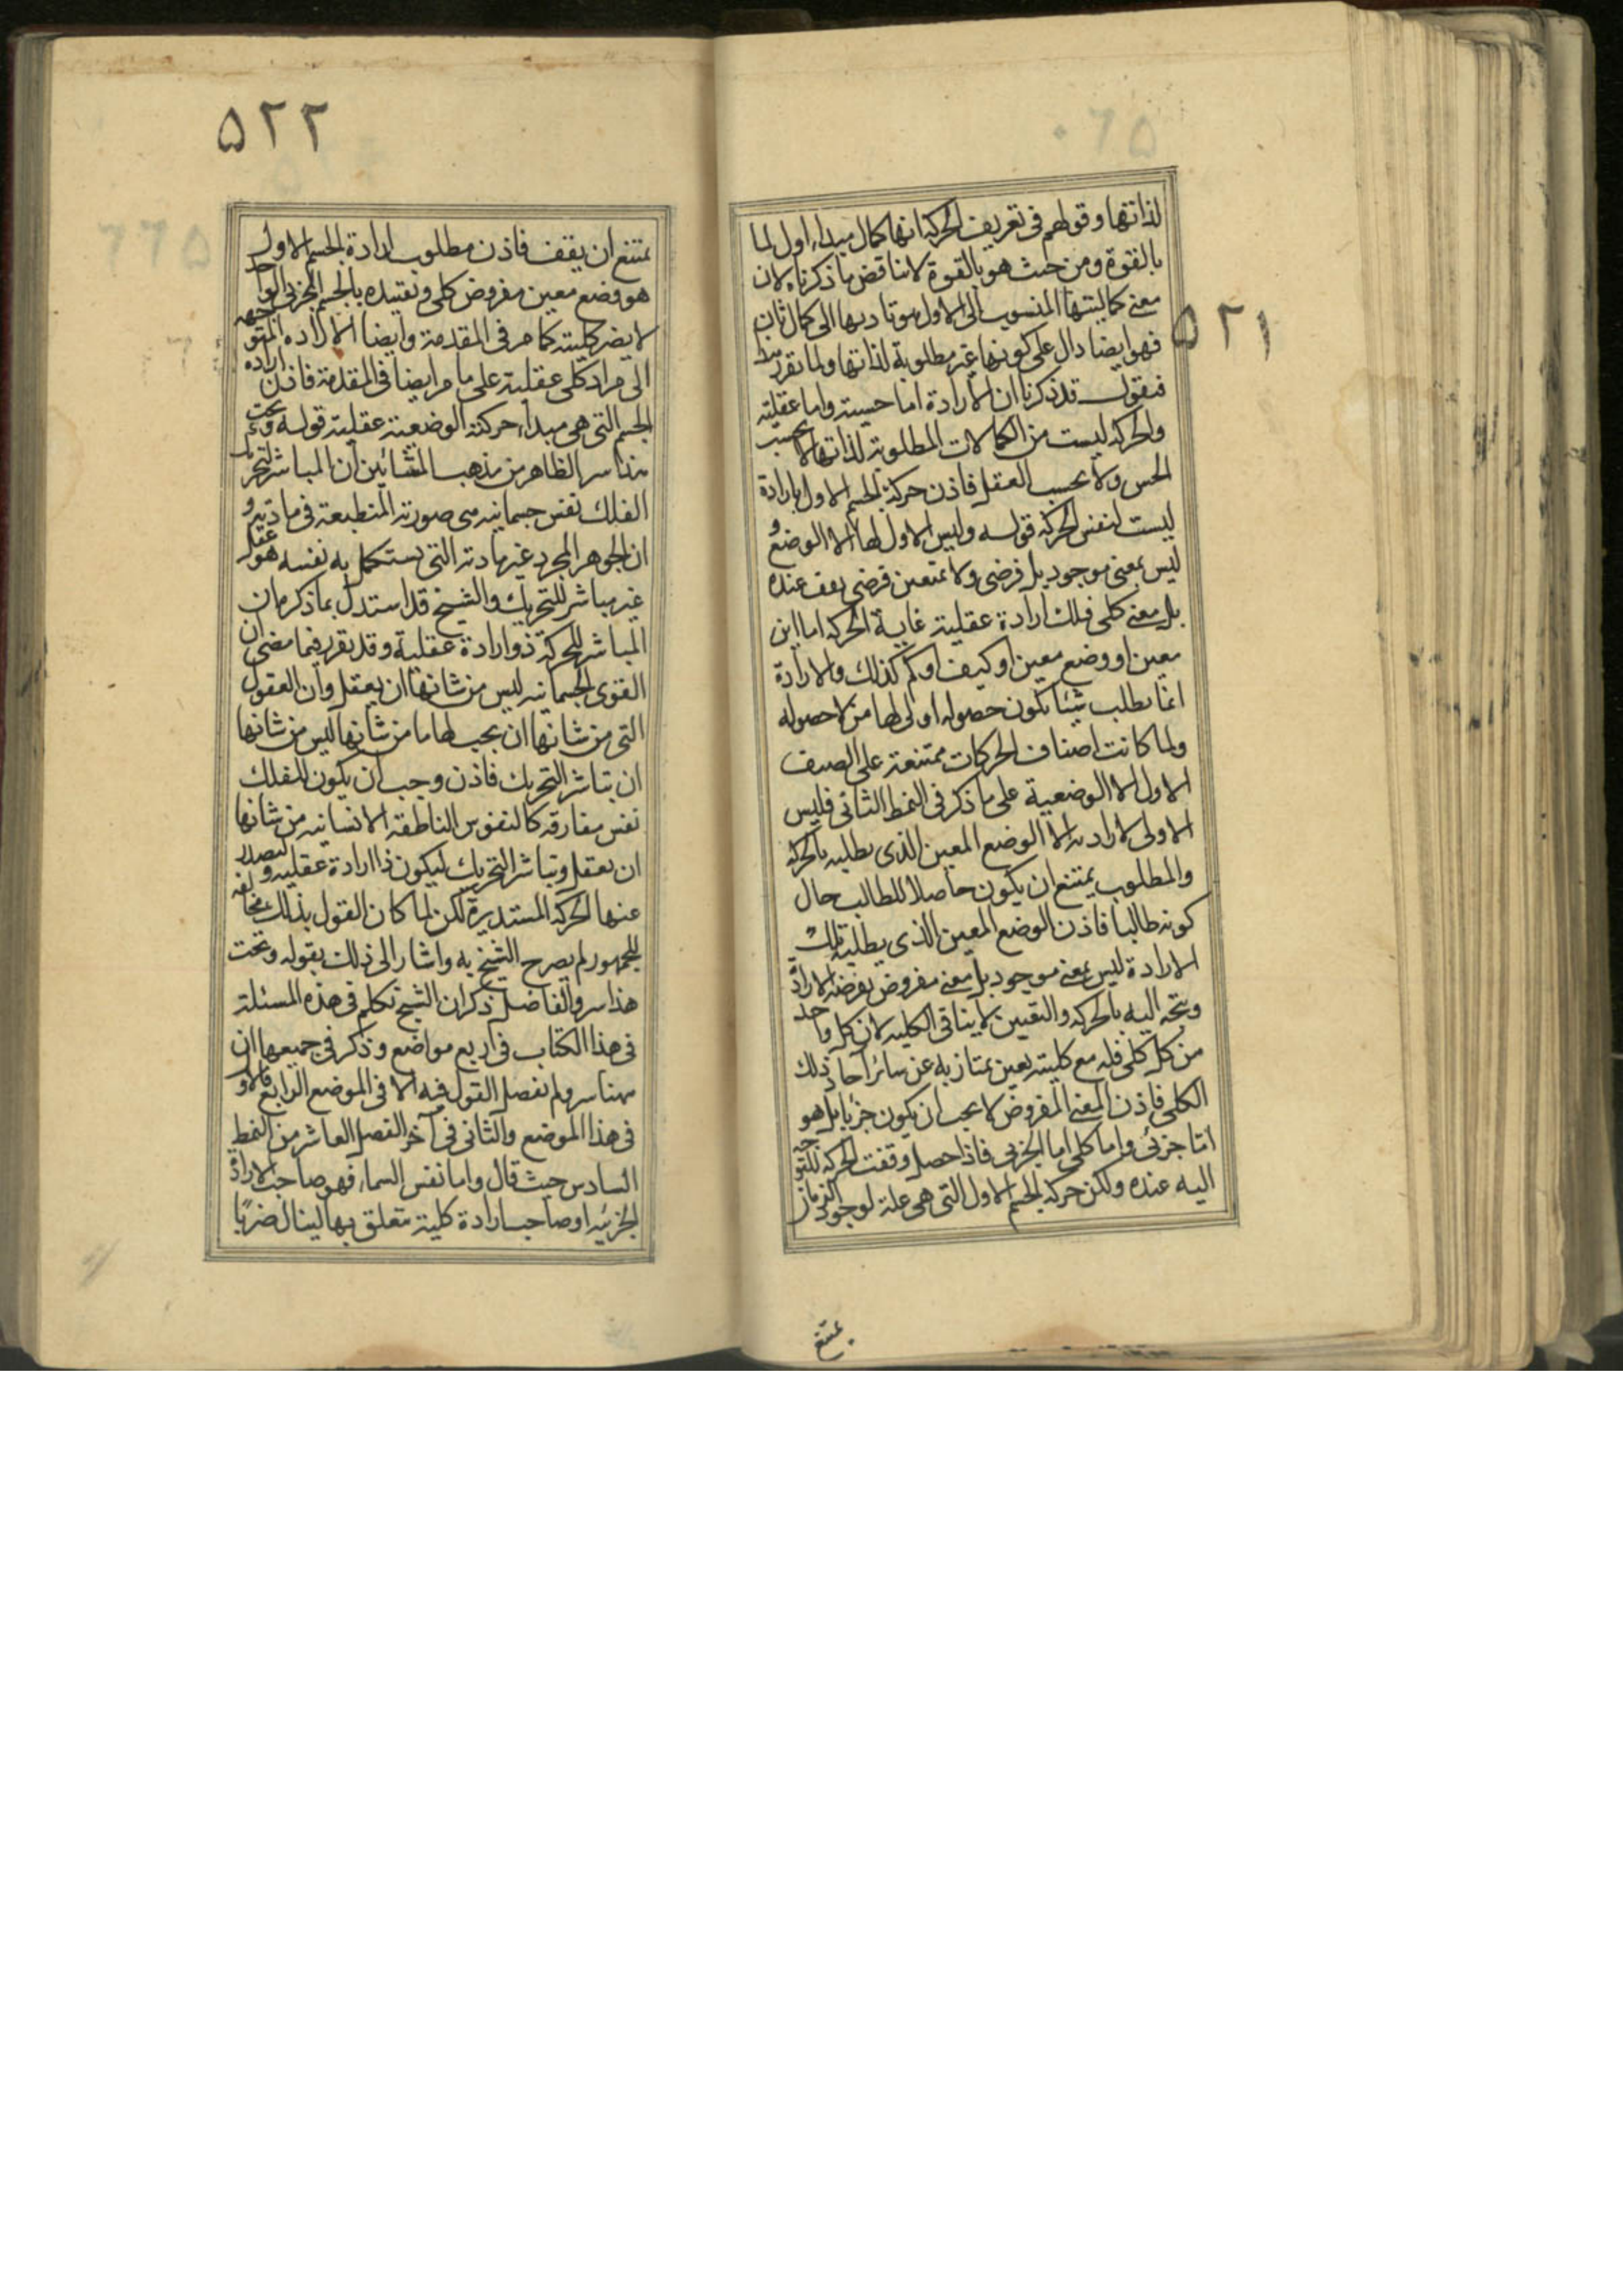 ٥٢١
لذاتها وقولهم فى تعريف الحركة انها كمال مبداء اول لما
بالقوة ومن حيث هو بالقوة لا يناقض ما ذكرناه لان
معنى كماليتها المنسوب الى الاول هو تاديها الى كمال ثان
فهو ايضا دال على كونها غير مطلوبة لذاتها ولما تقرر هذا
فنقول قد ذكرنا ان الارادة اما حسية واما عقلية
والحركة ليست من الكمالات المطلوبة لذاتها لا بحسب
الحس ولا بحسب العقل فاذن حركة الجسم الاول بارادة
ليست لنفس الحركة قوله وليس الاولى لها الا الوضع و
ليس بمعنى موجود بل فرضى ولا بمتعين فرضى يقف عنده
بل معنى كلى فلك ارادة عقلية غاية الحركة اما اين
معين او وضع معين او كيف او كم كذلك والارادة
انما يطلب شيئا يكون حصوله اولى لها من لا حصوله
ولما كانت اصناف الحركات ممتنعة على الصنف
الاول الا الوضعية على ما ذكر فى النمط الثانى فليس
الاولى لارادته الا الوضع المعين الذى يطلبه بالحركه
والمطلوب يمتنع ان يكون حاصلا للطالب حال
كونه طالبا فاذن الوضع المعين الذى يطلبه تلك
الارادة ليس بمعنى موجود بل معنى مفروض يفرضه الارادة
ويتجه اليه بالحركه والتعيين لا ينافى الكليه لان كل واحد
من كل كلى فله مع كليته تعين يمتاز به عن سائر آحاد ذلك
الكلى فاذن المعنى المفروض لا يجب ان يكون جزئيا بل هو
اما جزئى واما كلى اما الجزئى فاذا حصل وقفت الحركه للتوجه
اليه عنده ولكن حركة الجسم الاول التى هى علة لوجود الزمان
يمتنع
٥٢٢
يمتنع ان يقف فاذن مطلوب ارادة الجسم الاول
هو وضع معين مفروض كلى وتقييده بالجسم الجزئى الواحد
لا يضر كليته كما مر فى المقدمة وايضا الارادة المتوجهه
الى مراد كلى عقلية على ما مر ايضا فى المقدمة فاذن ارادة
الجسم التى هى مبداء حركته الوضعية عقلية قوله وتحت
هذا سر الظاهر من مذهب المشائين ان المباشر لتحريك
الفلك نفس جسمانيه هى صورته المنطبعة فى مادته و
ان الجوهر المجرد غير مادته التى يستكمل به نفسه هو عقل
غير مباشر للتحريك والشيخ قد استدل بما ذكره ان
المباشر للحركة ذو ارادة عقلية وقد تقرر فيما مضى ان
القوى الجسمانيه ليس من شانها ان يعقل وان العقول
التى من شانها ان يجب لها ما من شانها ليس من شانها
ان تباشر التحريك فاذن وجب ان يكون للفلك
نفس مفارقه كالنفوس الناطقة الانسانيه من شانها
ان يعقل وتباشر التحريك ليكون ذا ارادة عقليه وليصدر
عنها الحركه المستديرة لكن لما كان القول بذلك مخالفه
للجمهور لم يصرح الشيخ به واشار الى ذلك بقوله وتحت
هذا سر والفاضل ذكر ان الشيخ تكلم فى هذه المسئلة
فى هذا الكتاب فى اربع مواضع وذكر فى جميعها ان
ههنا سر ولم يفصل القول فيه الا فى الموضع الرابع فالاول
فى هذا الموضع والثانى فى آخر الفصل العاشر من النمط
السادس حيث قال واما نفس السماء فهو صاحب الارادة
الجزئيه او صاحب ارادة كلية متعلق بها لينال ضربا